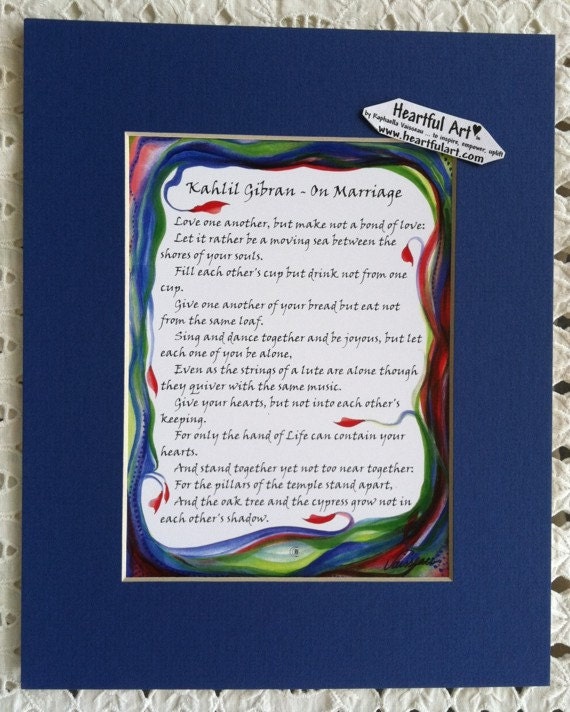 Heartful Art
by Raphaella Vaisseau ... to inspire, empower, uplift
www.heartfulart.com
Kahlil Gibran - On Marriage
Love one another, but make not a bond of love:
Let it rather be a moving sea between the
shores of your souls.
Fill each other's cup but drink not from one
cup.
Give one another of your bread but eat not
from the same loaf.
Sing and dance together and be joyous, but let
each one of you be alone,
Even as the strings of a lute are alone though
they quiver with the same music.
Give your hearts, but not into each other's
keeping.
For only the hand of Life can contain your
hearts.
And stand together yet not too near together:
For the pillars of the temple stand apart,
And the oak tree and the cypress grow not in
each other's shadow.